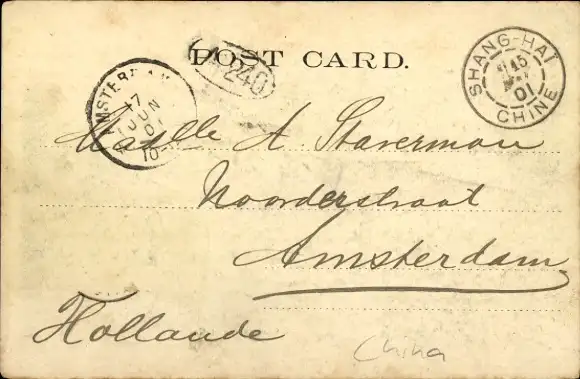 POST CARD.
240
SHANG-HAI
15
01
CHINE
AMSTERDAM
17
JUN
01
10
Madlle A Staverman
Noorderstraat
Amsterdam
Hollande
China